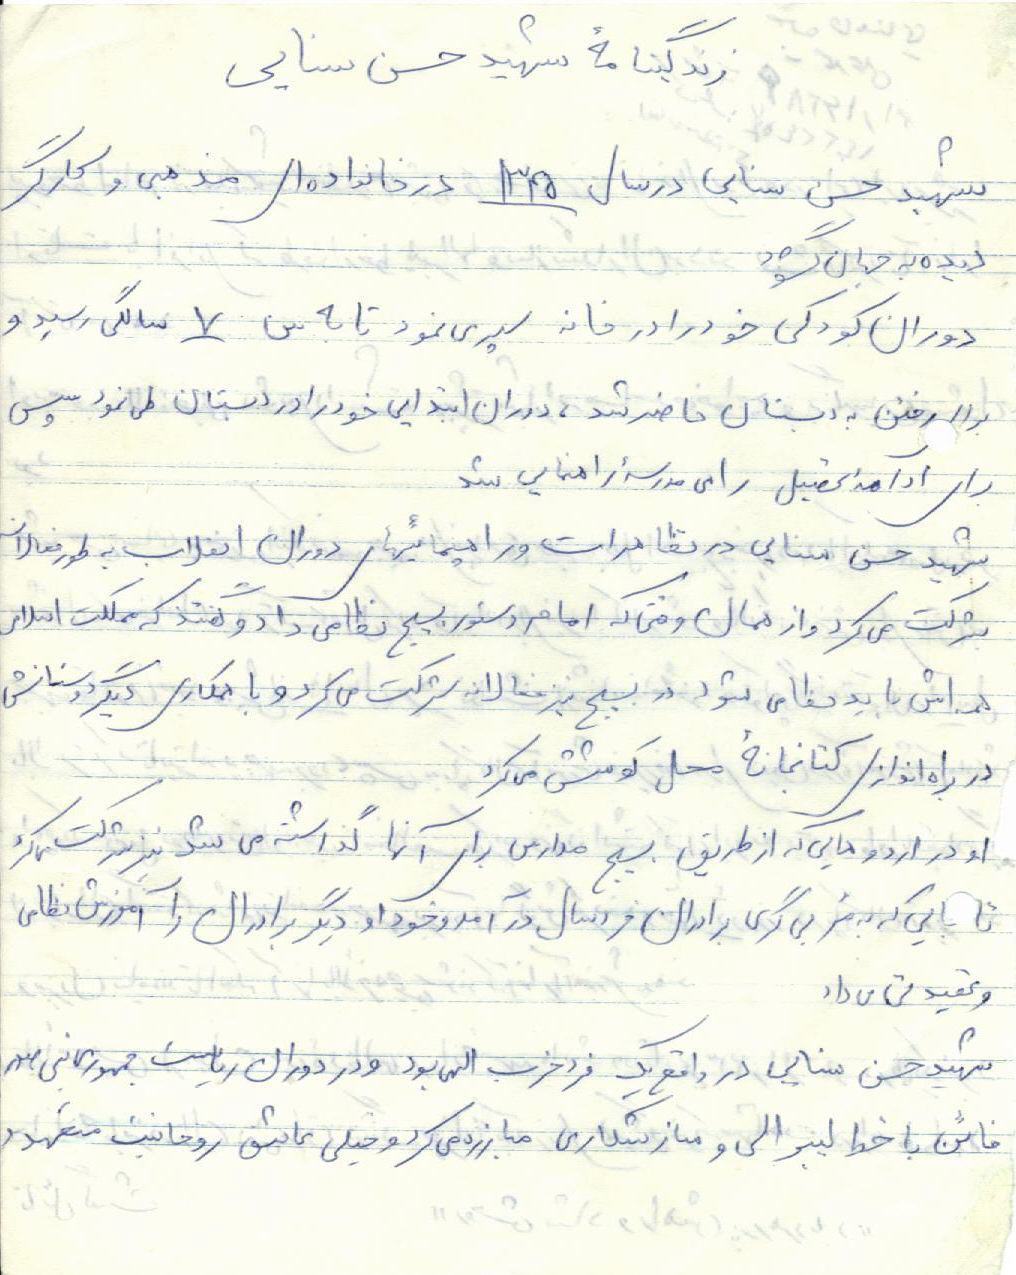 زندگینامهٔ شهید حسن سنایی
شهید حسن سنایی در سال ۱۳۴۵ در خانواده‌ای مذهبی و کارگر
دیده به جهان گشود
دوران کودکی خود را در خانه سپری نمود تا به سن ۷ سالگی رسید و
برای رفتن به دبستان حاضر شد، دوران ابتدایی خود را در دبستان طی نمود سپس
برای ادامهٔ تحصیل راهی مدرسهٔ راهنمایی شد
شهید حسن سنایی در تظاهرات و راهپیمائیهای دوران انقلاب به طور فعالانه
شرکت می‌کرد و از همان وقتی که امام دستور بسیج نظامی داد و گفتند که مملکت اسلامی
همه‌اش باید نظامی شود در بسیج نیز فعالانه شرکت می‌کرد و با همکاری دیگر دوستانش
در براه اندازی کتابخانهٔ محل کوشش می‌کرد
او در اردوهایی که از طریق بسیج مدارس برای آنها گذاشته می‌شد نیز شرکت می‌کرد
تا جایی که به مربی گری برادران خردسال در آمد و خود او دیگر برادران را آموزش نظامی
و عقیدتی می‌داد
شهید حسن سنایی در واقع یک فرد حزب الهی بود و در دوران ریاست جمهوری بنی صدر
خائن با خط لیبرالی و سازشکاری مبارزه می‌کرد و خیلی عاشق روحانیت متعهد و